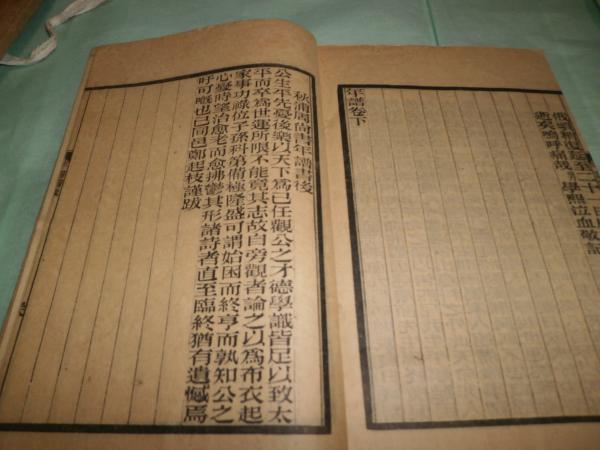 學熙泣血敬記
年譜卷下
秋浦周尚書年譜書後
公生平先憂後樂以天下爲己任觀公之才德學識皆足以致太
平而卒爲世運所限不能竟其志故自旁觀者論之以爲布衣起
家事功祿位子孫科第備極隆盛可謂始困而終亨而孰知公之
心憂時望治愈老而愈拂鬱其形諸詩者直至臨終猶有遺憾焉
呼可嘅也已同邑鄭起枝謹跋